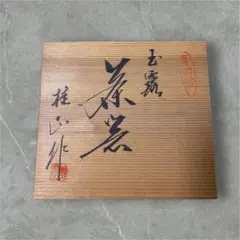 玉露
茶器
桂山作